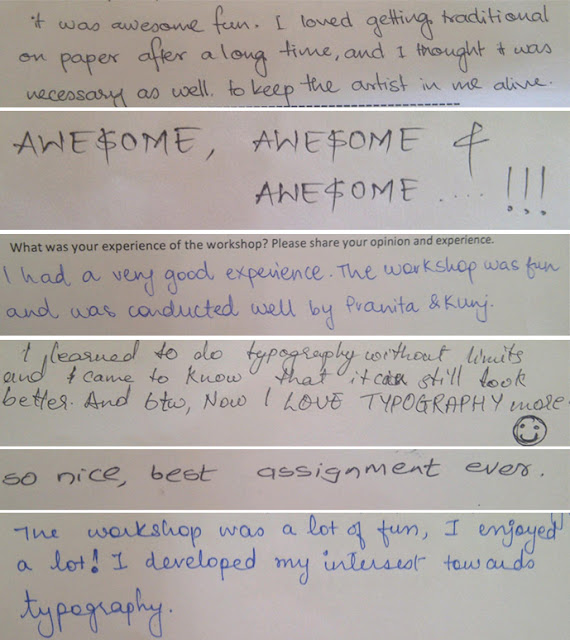 it was awesome fun. I loved getting traditional
on paper after a long time, and I thought it was
necessary as well. to keep the artist in me alive.
AWE$OME, AWE$OME &
AWE$OME .... !!!
What was your experience of the workshop? Please share your opinion and experience.
I had a very good experience. The workshop was fun
and was conducted well by Pranita & Kunj.
I learned to do typography without limits
and I came to know that it can still look
better. And btw, Now I LOVE TYPOGRAPHY more.
so nice, best assignment ever.
The workshop was a lot of fun, I enjoyed
a lot! I developed my intersest towards
typography.